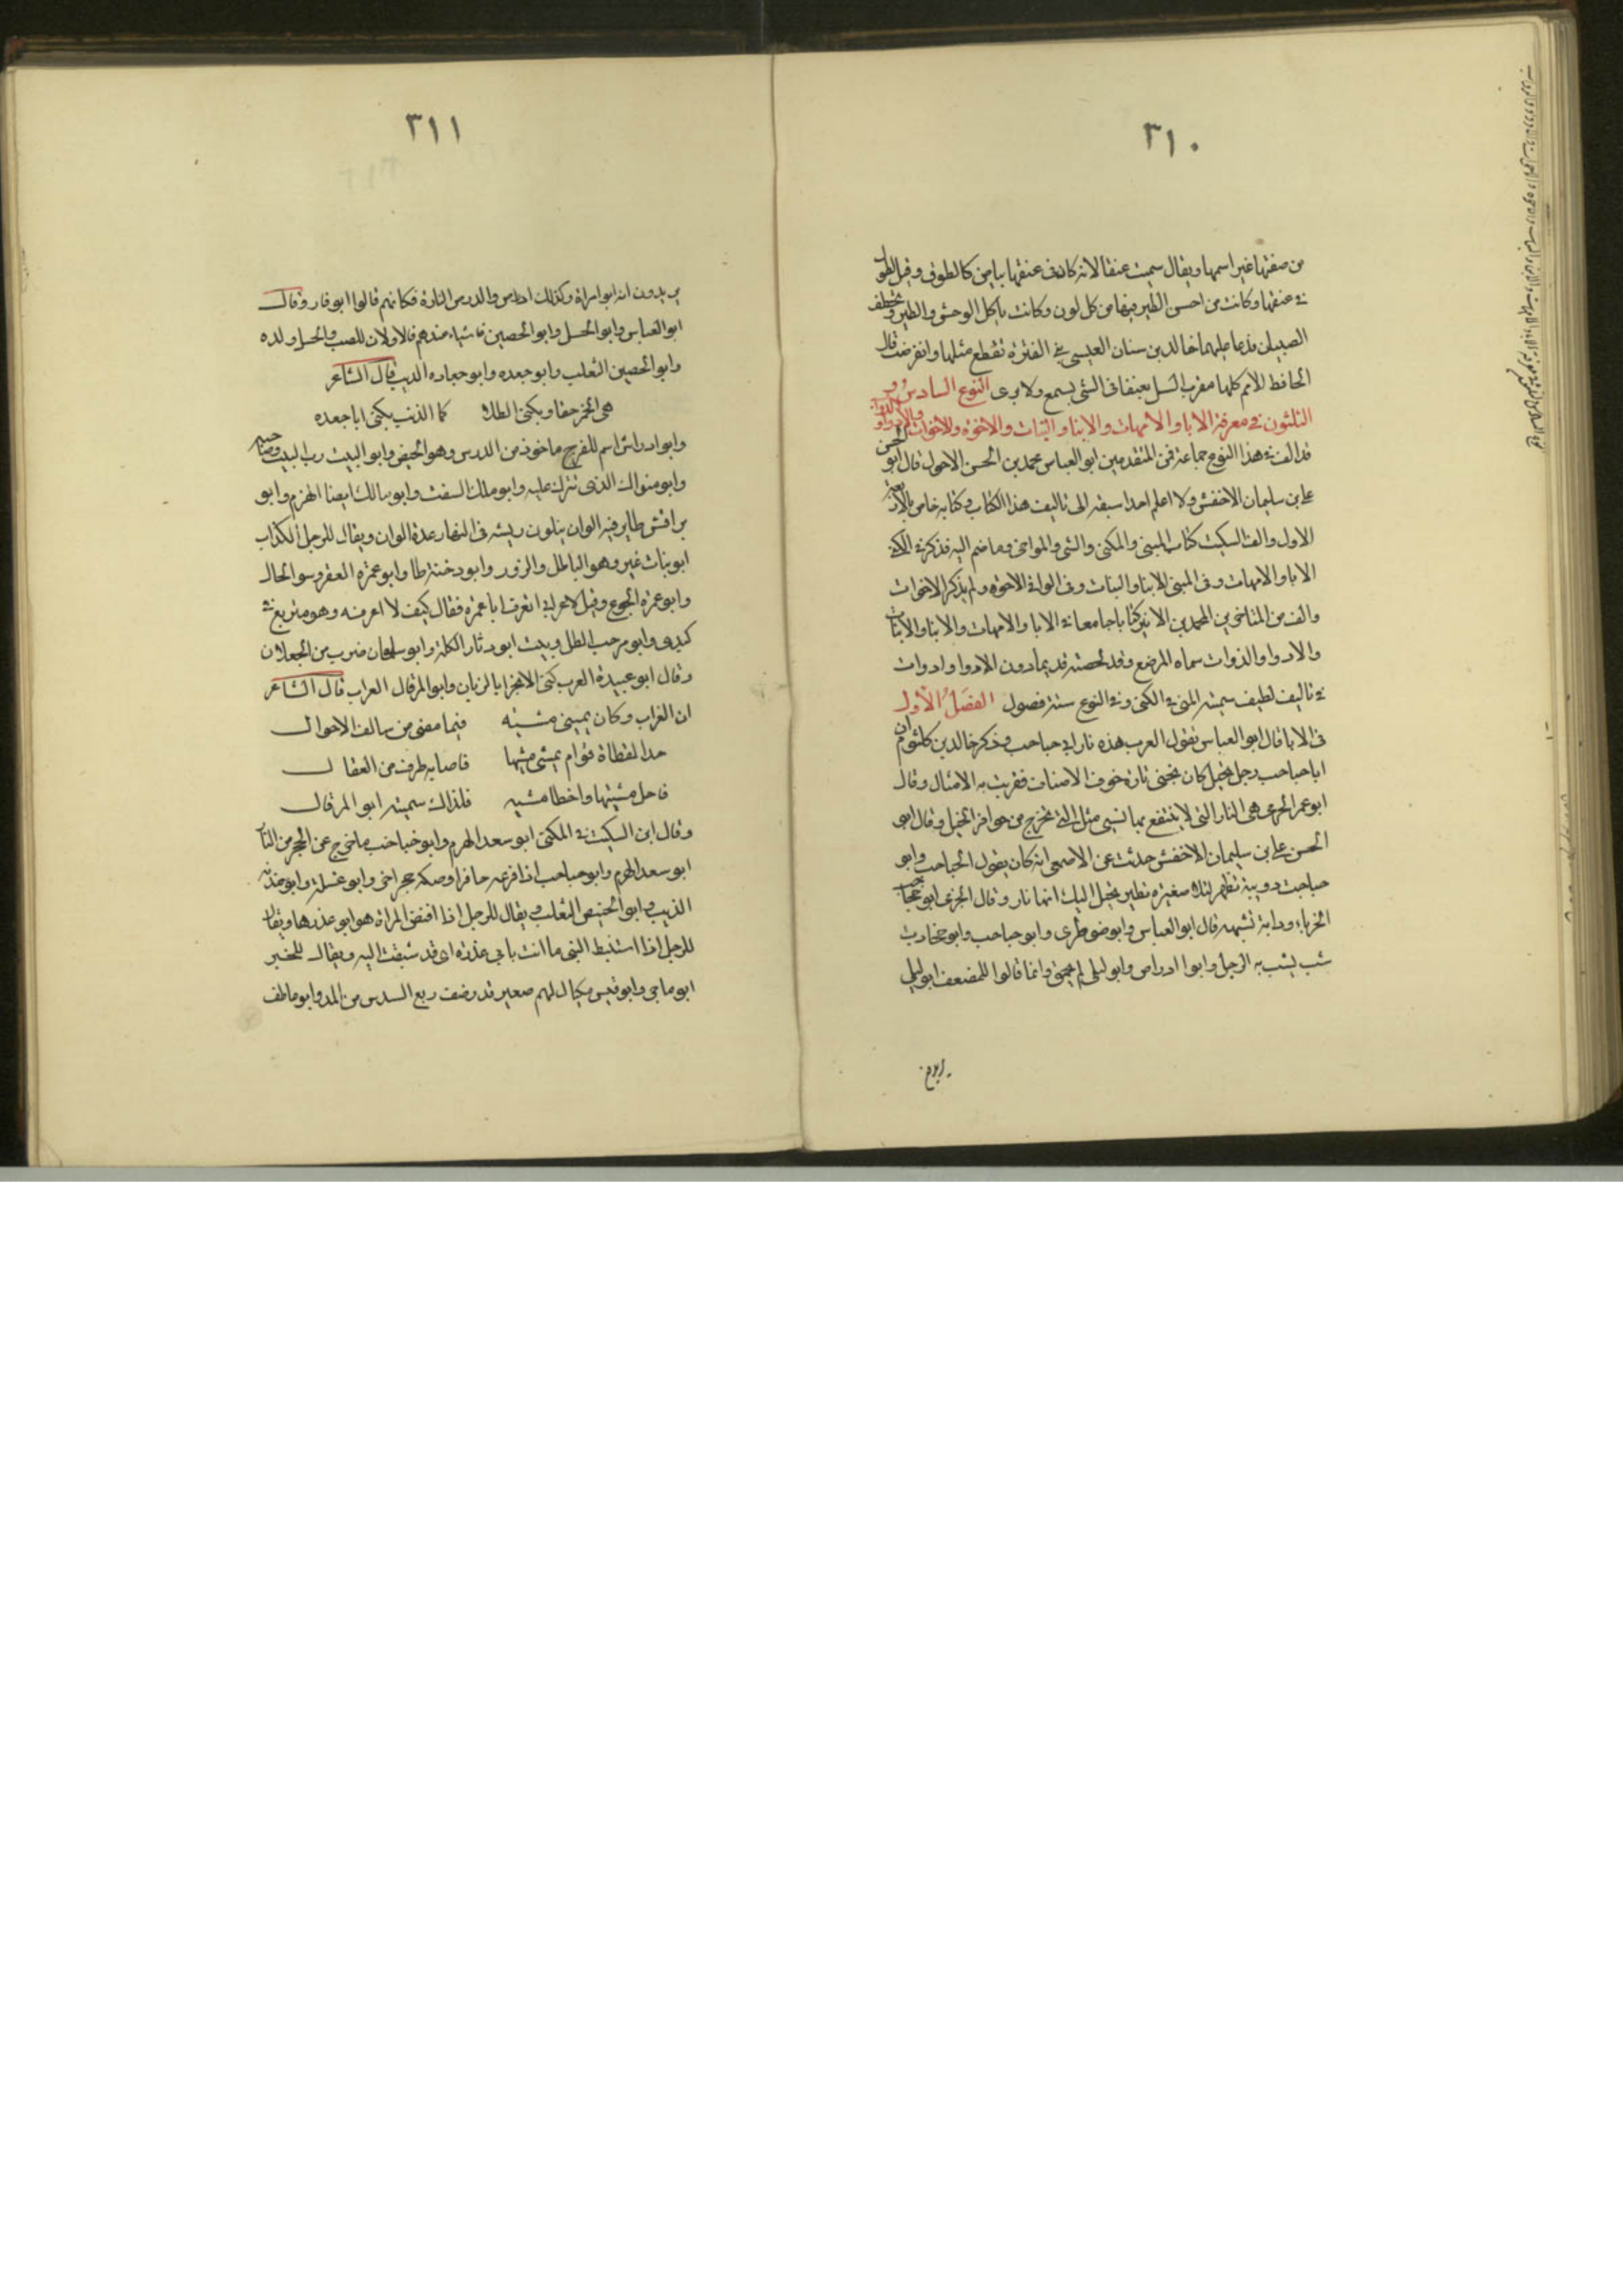 ٣١٠
من صفتها غير اسمها ويقال سميت عنقا لانه كان فى عنقها بياض كالطوق وقيل لطول
فى عنقها وكانت من احسن الطير فيها من كل لون وكانت تاكل الوحش والطير وتخطف
الصبيان فدعا عليها خالد بن سنان العبسى فى الفترة فقطع مثلها وانقرضت قال
الحافظ للامم كلها مغرب المثل بعنقا فى الشى يسمع ولا يرى النوع السادس و
الثلثون فى معرفة الابا والامهات والابنا والبنات والاخوة والاخوات والاذوا والذوات
قد الف فى هذا النوع جماعة فمن المتقدمين ابو العباس محمد بن الحسن الاحول قال ابو الحسن
على بن سليمان الاخفش ولا اعلم احدا سبقه الى تاليف هذا الكتاب وكتابه خاص بالاربعة
الاول والف السكيت كتاب المبنى والمكنى والمثنى والمواخى وما ضم اليه فذكر فى المكنى
الابا والامهات وفى المبنى الابنا والبنات وفى المواخى الاخوة ولم يذكر الاخوات
والف من المتاخرين المحمد بن الاثير كتابا جامعا فى الابا والامهات والابنا والبنات
والاذوا والذوات سماه المرصع وقد لخصته قديما دون الاذوا والذوات
فى تاليف لطيف سميته المنى فى الكنى وفى النوع ستة فصول الفصل الاول
فى الابا قال ابو العباس تقول العرب هذه نار ابى حباحب وذكر خالد بن كلثوم ان
ابا حباحب رجل بخيل كان يخفى ناره خوف الاضياف فضربت به الامثال وقال
ابو عمر الجرمى هى النار التى لا ينتفع بها شى مثل التى تخرج من حوافر الخيل وقال ابو
الحسن على بن سليمان الاخفش حدثت عن الاصمعى انه كان يقول الحباحب وابو
حباحب دويبة تظهر ليلا صغيرة تطير يخيل اليك انها نار وقال الجرمى ابو جخادب
الحرباء ودابة تشبهه قال ابو العباس وابو ضوطرى وابو حباحب وابو جخادب
سب يسب به الرجل وابو ادراص وابو ليلى لم يحمق وانما قالوا للمضعف ابو ليلى
يريدون
٣١١
يريدون انه ابو امراة وكذلك ادراص والدرص الفارة فكانهم قالوا ابو فار وقال
ابو العباس وابو الحسل وابو الحصين فاشياء عندهم فالاولان للضب والحسل ولده
وابو الحصين الثعلب وابو جعده وابو جعاده الذيب قال الشاعر
هى الخمر حقا ويكنى الطلا كما الذئب يكنى ابا جعده
وابو ادراس اسم للفرج ماخوذ من الدرس وهو الحيض وابو البيت رب البيت وصاحبه
وابو مثواك الذى تنزل عليه وابو ملك السغب وابو مالك ايضا الهرم وابو
براقش طاير فيه الوان يتلون ريشه فى النهار عدة الوان ويقال للرجل الكذاب
ابو بنات غير وهو الباطل والزور وابو دخنة طا وابو عمرة الفقر وسو الحال
وابو عمرة الجوع وقيل لاعرابى اتعرف ابا عمرة فقال كيف لا اعرفه وهو متربع فى
كبدى وابو مرحب الظل وبيت ابو دثار الكلة وابو سلمان ضرب من الجعلان
وقال ابو عبيدة العرب كنى الابخر ابا الزبان وابو المرقال الغراب قال الشاعر
ان الغراب وكان يمشى مشيه فيما مضى من سالف الاحوال
حدا لقطاة فرام يمشى مشيها فاصابه طرف من العقال
فاضل مشيتها واخطا مشيه فلذاك سميته ابو المرقال
وقال ابن السكيت فى المكنى ابو سعد الهرم وابو خباخب ماخرج عن الحجر من النار
ابو سعد الهرم وابو حباحب اذا قرعه حافر او صكه حجر اخر وابو غسلة وابو مذقة
الذيب وابو الحنبص الثعلب ويقال للرجل اذا افتض المراة هو ابو عذرها ويقال
للرجل اذا استنبط الشى ما انت بابى عذره اى قد سبقت اليه ويقال للخبز
ابو ماجى وابو قبيس مكيال لهم صغير قدر ضعف ربع السدس من المد وابو ماطف